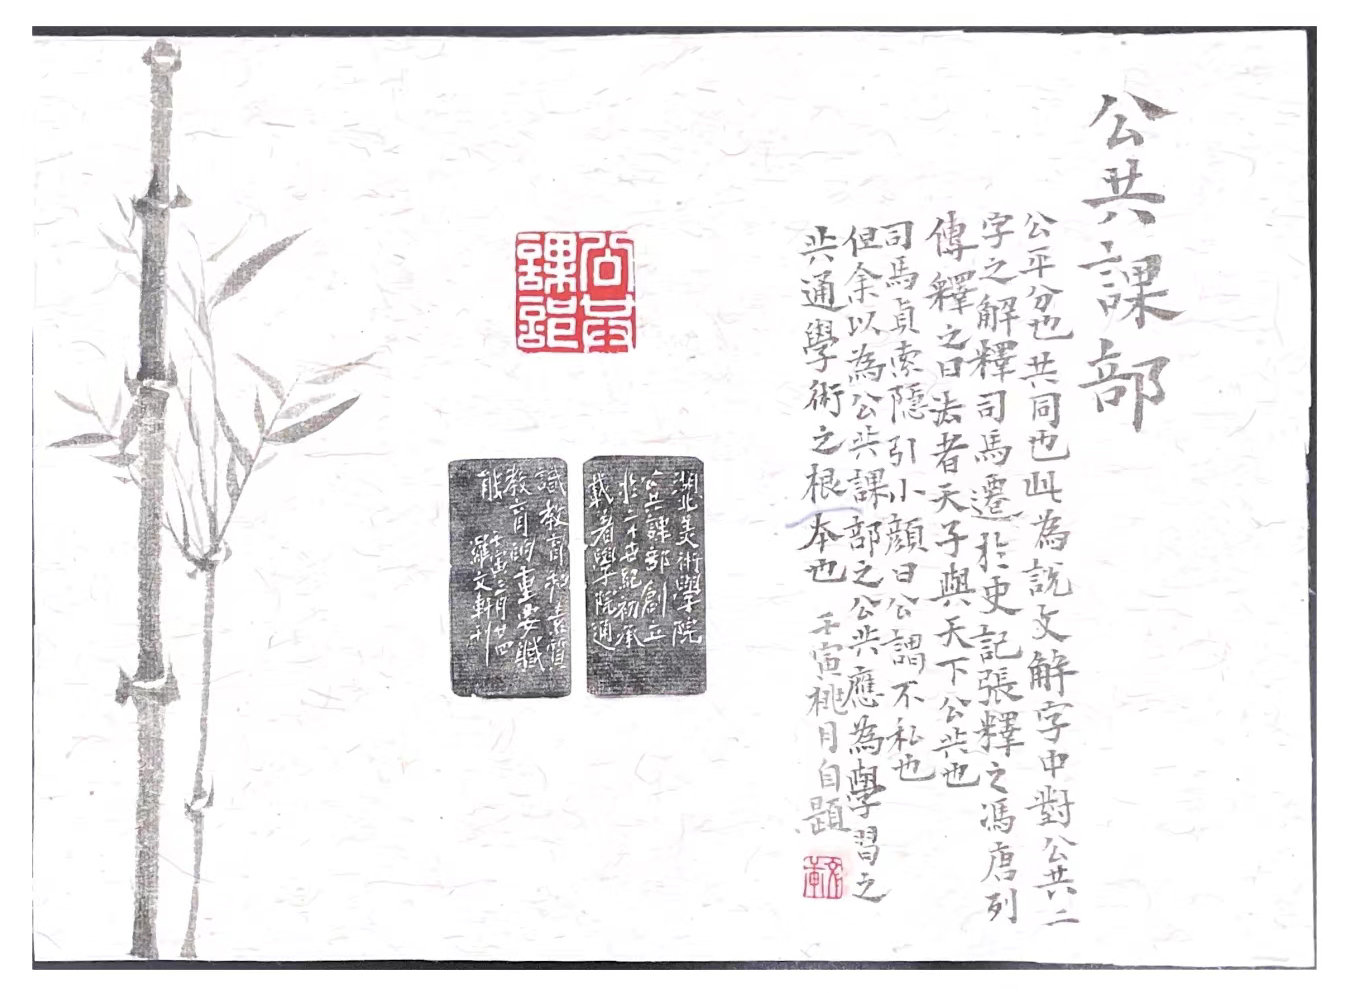 公共課部
公平分也共同也此為説文解字中對公共二
字之解釋司馬遷於史記張釋之馮唐列
傳釋之曰法者天子與天下公共也
司馬貞索隱引小顔曰公謂不私也
但余以為公共課部之公共應為學習之
共通學術之根本也
壬寅桃月自題
公共
課部
湖北美術學院
公共課部創立
於二十世紀初承
載着學院通
識教育和素質
教育的重要職
能
壬寅三月廿四
羅文軒刊